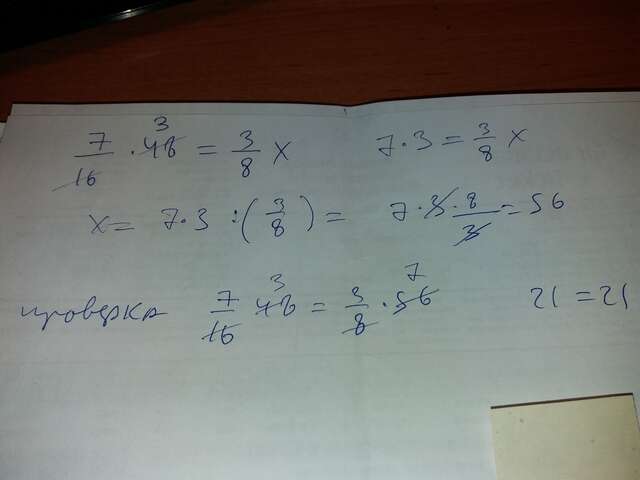 7/16 · 48 3 = 3/8 x 7 · 3 = 3/8 x
x = 7 · 3 : (3/8) = 7 · 3 · 8/3 = 56
проверка 7/16 48 3 = 3/8 · 56 7 21 = 21